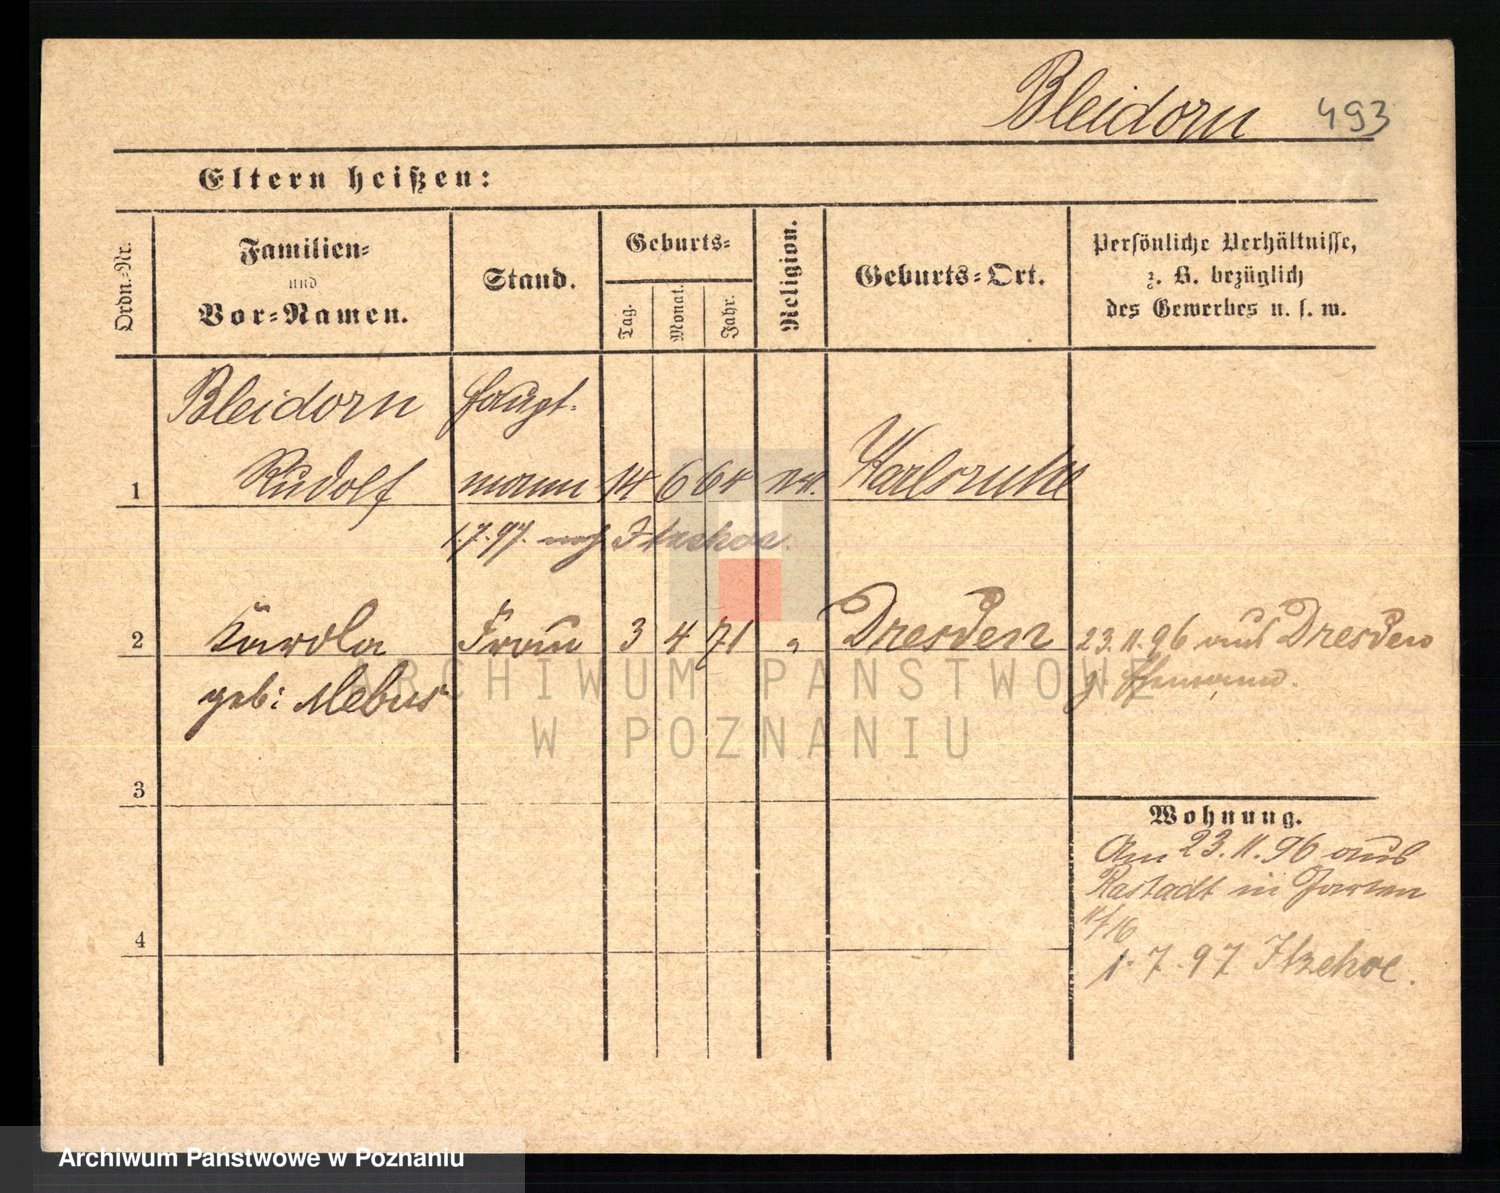 Bleidorn 493
Eltern heißen:
Ordn.-Nr.
Familien-
und
Vor-Namen.
Stand.
Geburts-
Tag.
Monat.
Jahr.
Religion.
Geburts-Ort.
Persönliche Verhältnisse,
z. B. bezüglich
des Gewerbes u. s. w.
Bleidorn Haupt-
1 Rudolf mann 14 6 64 ev. Karlsruhe
1.7.97. nach Itzehoe.
2 Karola Frau 3 4 71 " Dresden 23.11.96 aus Dresden
geb: Mebus
3
Wohnung.
Am 23.11.96 aus
Rastadt in Garten
11/16
4
1.7.97 Itzehoe.
ARCHIWUM PAŃSTWOWE
W POZNANIU
Archiwum Państwowe w Poznaniu